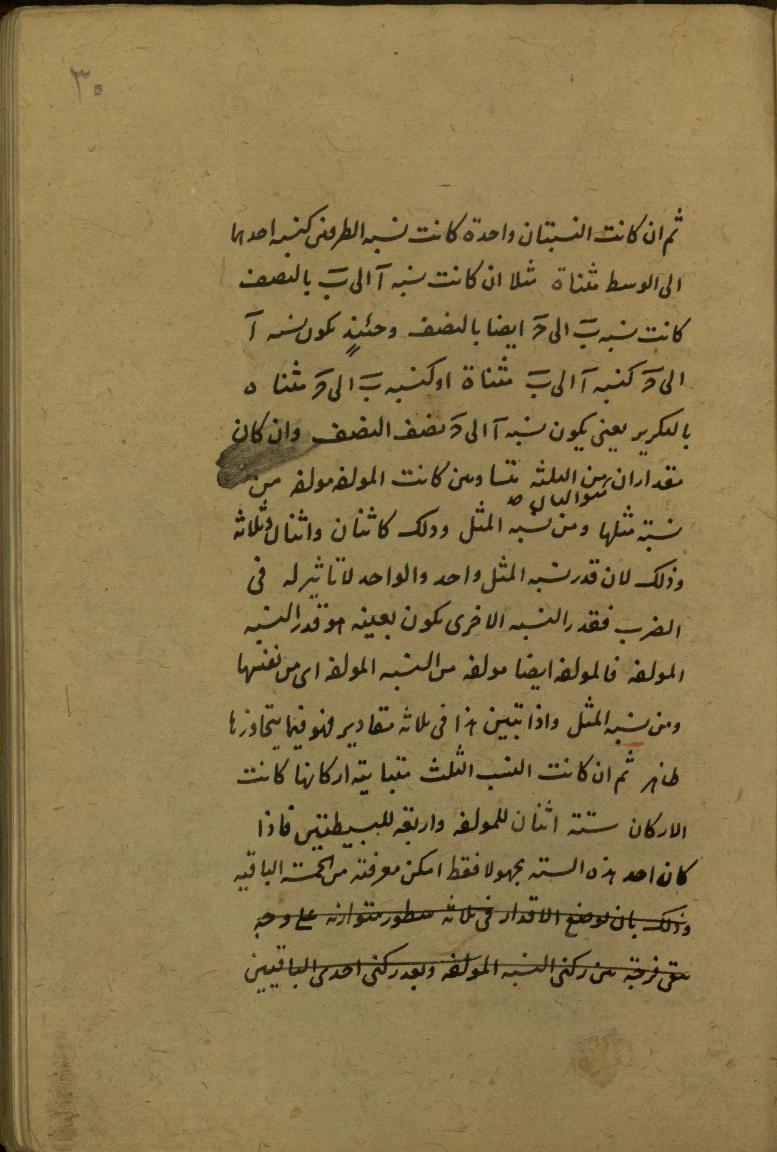 ٣٠
ثم ان كانت النسبتان واحدة كانت نسبه الطرفين كنسبه احدهما
الى الوسط مثناة مثلا ان كانت نسبه آ الى ب بالنصف
كانت نسبه ب الى ج ايضا بالنصف وحينئذ يكون نسبه آ
الى ج كنسبه آ الى ب مثناة او كنسبه ب الى ج مثناه
بالتكرير يعنى يكون نسبه آ الى ج نصف النصف وان كان
مقداران من الثلثه متساويين كانت المولفه مولفه من
متواليان
نسبته مثلها ومن نسبه المثل وذلك كاثنان واثنان وثلاثه
وذلك لان قدر نسبه المثل واحد والواحد لا تاثير له فى
الضرب فقدر النسبه الاخرى يكون بعينه هو قدر النسبه
المولفه فالمولفه ايضا مولفه من النسبه المولفه اى من نفسها
ومن نسبه المثل واذا تبين هذا فى ثلاثه مقادير فهو فيما يتجاوزها
ظاهر ثم ان كانت النسب الثلث متباينه اركانها كانت
الاركان ستته اثنان للمولفه واربعه للبسيطتين فاذا
كان احد هذه السته مجهولا فقط امكن معرفته من الخمسه الباقيه
وذلك بان يوضع الاقدار فى ثلاثه سطور متوازنه على وجه
يبقى فرجة بين ركنى النسبه المولفه وبعد ركنى احدى الباقيين